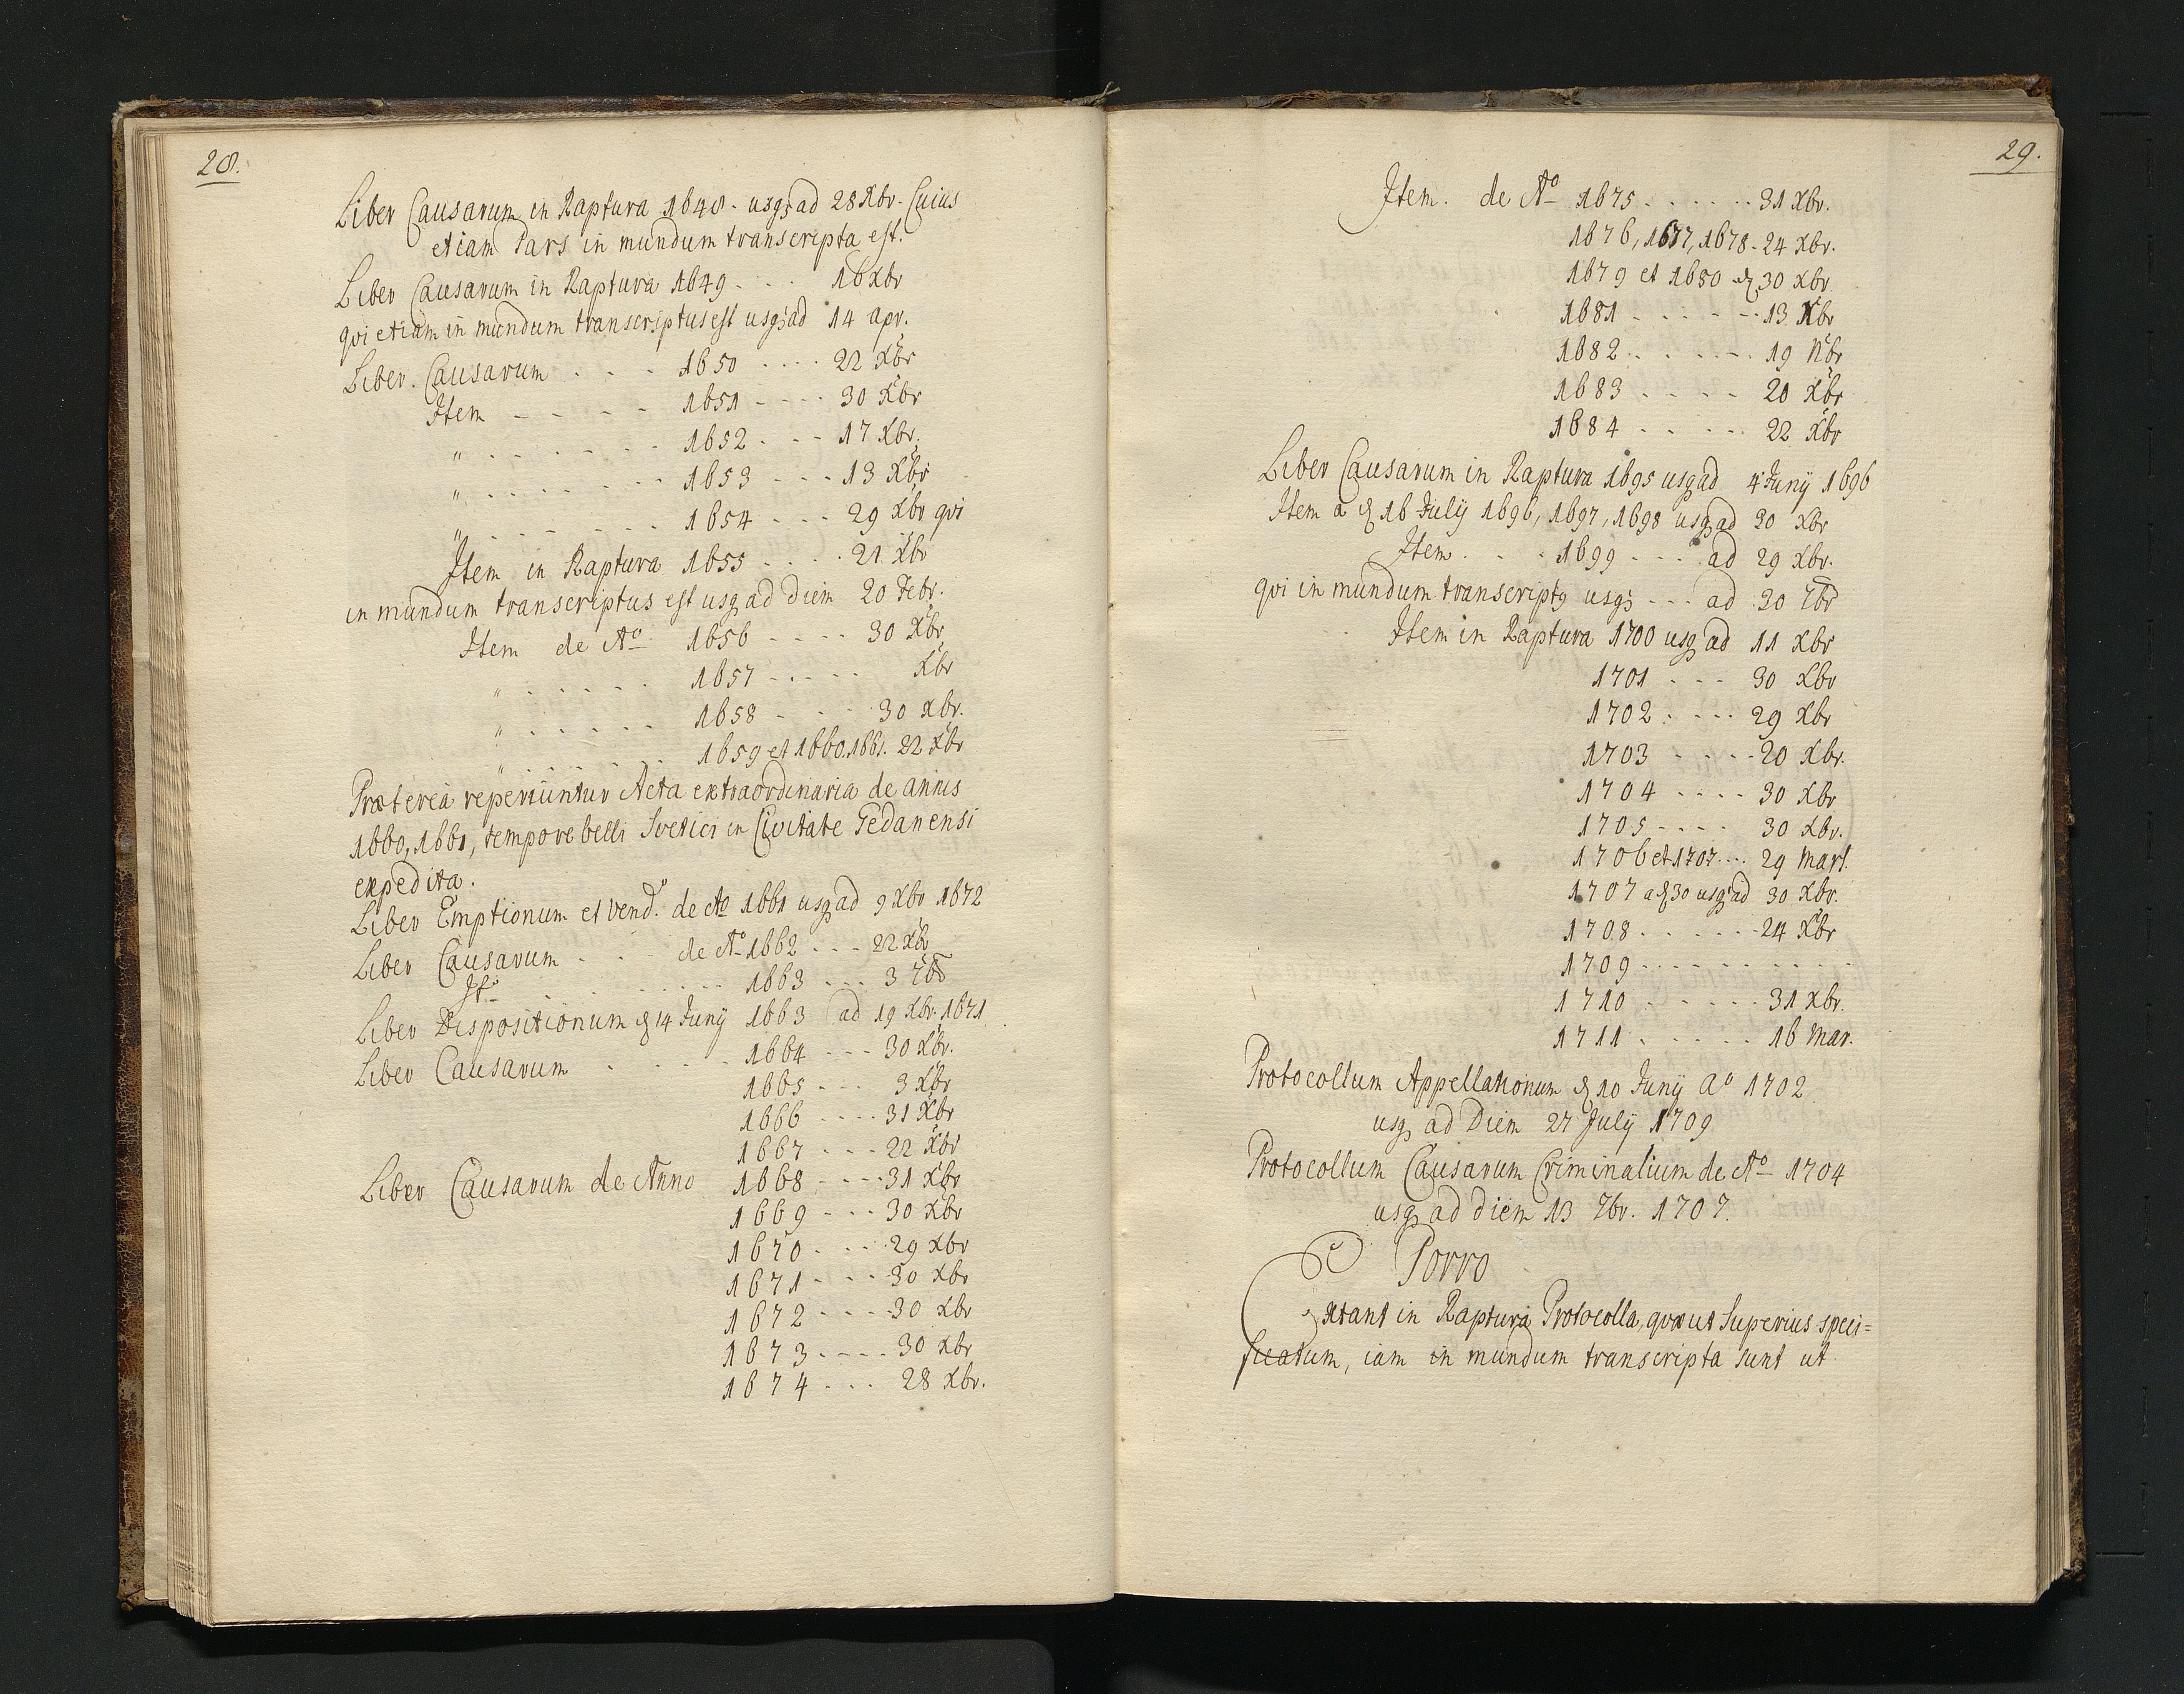 28.
Liber Causarum in Raptura 1648 - usq; ad 28 Xbr. Cuius
etiam Pars in mundum transcripta est.
Liber Causarum in Raptura 1649 - . . 16 Xbr
qvi etiam in mundum transcriptus est usq; ad 14 apr.
Liber Causarum . . - 1650 . . . . 22 Xbr
Item - - - - - 1651 - - - . 30 Xbr
" . . - . - - 1652 . - - 17 Xbr.
" . . . . . - - 1653 - - - 13 Xbr
" . . . - - - 1654 - - - 29 Xbr qvi
Item in Raptura 1655 - . . . 21 Xbr
in mundum transcriptus est usq ad Diem 20 Febr.
Item de Ao 1656 - - - - 30 Xbr
" . . . . . 1657 - . - - - Xbr
" . . . . - - 1658 - . - - 30 Xbr.
" . . . . . . 1659 et 1660. 1661. 22 Xbr
Præterea reperiuntur Acta extraordinaria de annis
1660, 1661, tempore belli Svetici in Civitate Gedanensi
expedita.
Liber Emptionum et Vend. de Ao 1661 usq ad 9 Xbr 1672
Liber Causarum - . . - de Ao 1662 . . - - 22 Xbr
It. . . . . - - - - 1663 - - - 3 7br
Liber Dispositionum 14 Juny 1663 ad 19 Xbr. 1671
Liber Causarum . - . . - 1664 - - - 30 Xbr.
1665 - - - 3 Xbr
1666 - - - - 31 Xbr
1667 - - - 22 Xbr
Liber Causarum de Anno 1668 - - - - 31 Xbr
1669 - - - 30 Xbr
1670 - . - . 29 Xbr
1671 - - - 30 Xbr
1672 - - - - 30 Xbr
1673 . - - - 30 Xbr
1674 - - . 28 Xbr.
29.
Item. de Ao 1675 . . . . . . 31 Xbr.
1676, 1677, 1678 - 24 Xbr.
1679 et 1680 30 Xbr
1681 - - - - - - 13 Xbr
1682 . . . . - - . 19 Nbr
1683 . - - - 20 Xbr
1684 - . - - . 22 Xbr
Liber Causarum in Raptura 1695 usq ad 4 Juny 1696
Item a 16 July 1696, 1697, 1698 usq ad 30 Xbr
Item . . . 1699 - - - ad 29 Xbr.
qvi in mundum transcripty usq; - - - ad 30 7br
Item in Raptura 1700 usq ad 11 Xbr
1701 - - - 30 Xbr
1702 . - - - 29 Xbr
1703 - - - - 20 Xbr.
1704 - - - - 30 Xbr
1705 - - - - 30 Xbr.
1706 et 1707 - - . 29 Mart.
1707 a 30 usq ad 30 Xbr.
1708 . . . . . - 24 Xbr
1709 - - - - - - - - - -
1710 - - - - - - 31 Xbr.
1711 . . . . . . 16 Mar.
Protocollum Appellationum 10 Juny Ao 1702
usq ad Diem 27 July 1709
Protocollum Causarum Criminalium de Ao 1704
usq ad diem 13 7br. 1707.
Porro
Extant in Raptura Protocolla, qvæ ut Superius speci=
ficatum, iam in mundum transcripta sunt ut